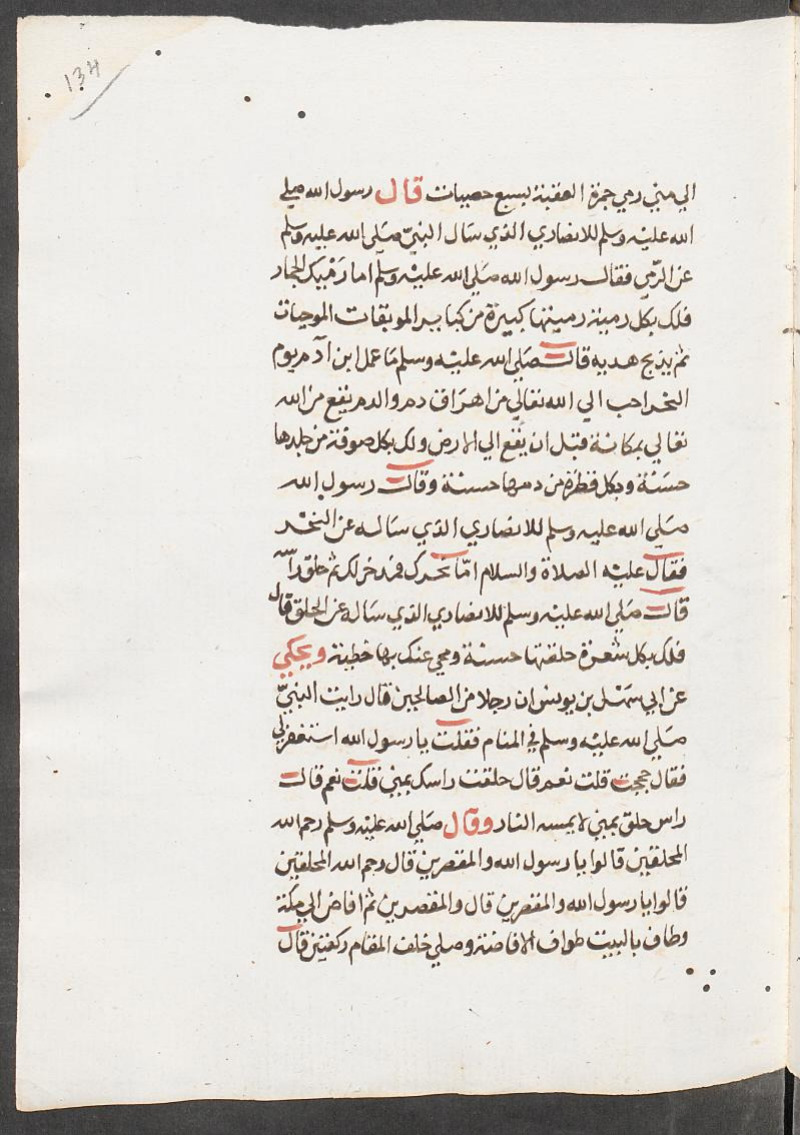 134
الي مني رمي جمرة العقبة بسبع حصيات قال رسول الله صلي
الله عليه وسلم للانصاري الذي سال النبيّ صَلي الله عليه وسلم
عن الرّمي فقال رسول الله صَلي الله عليه وسلم اما رَمْيك الجمار
فلك بكل رمية رميتها كبيرة من كباير الموبقات الموجبات
ثم يذبح هديه قال صَلي الله عليه وسلم مَا عمل ابن آدم يوم
النحر احب الي الله تعالي من اهراق دم والدم يقع من الله
تعالي بمكانة قبل ان يَقع الي الارض ولك بكل صوفة من جلدها
حسَنة وبكل قطرة من دمها حسنة وقال رسول الله
صَلي الله عليه وسلم للانصاري الذي ساله عن النحْر
فقال عليه الصلاة والسلام امّا نحرك فمدخر لك ثم حلق راسه
قال صَلي الله عليه وسلم للانصاري الذي ساله عن الحلق قال
فلك بكل شعرة حلقتها حسنة ومحي عنك بها خطية ويحكي
عن ابي سَهْل بن يونس ان رجلا من الصالحين قال رايت النبيّ
صَلي الله عليه وسلم في المنام فقلت يا رسول الله استغفر لي
فقال حججت قلت نعم قال حلقت راسك بمني قلت نعم قال
راس حلق بمني لا يمسه النار وقال صَلي الله عليه وسلم رحم الله
المحلقين قالوا يا رسول الله والمقصرين قال رحم الله المحلقين
قالوا يا رسول الله والمقصرين قال والمقصرين ثم افاض الي مكة
وطاف بالبيت طواف الافاضة وصلي خلف المقام ركعتين قال